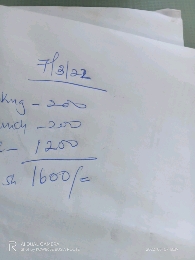 7/3/22
kng - 200
mich - 200
- 1250
sh 1600/=
AI DUAL CAMERA